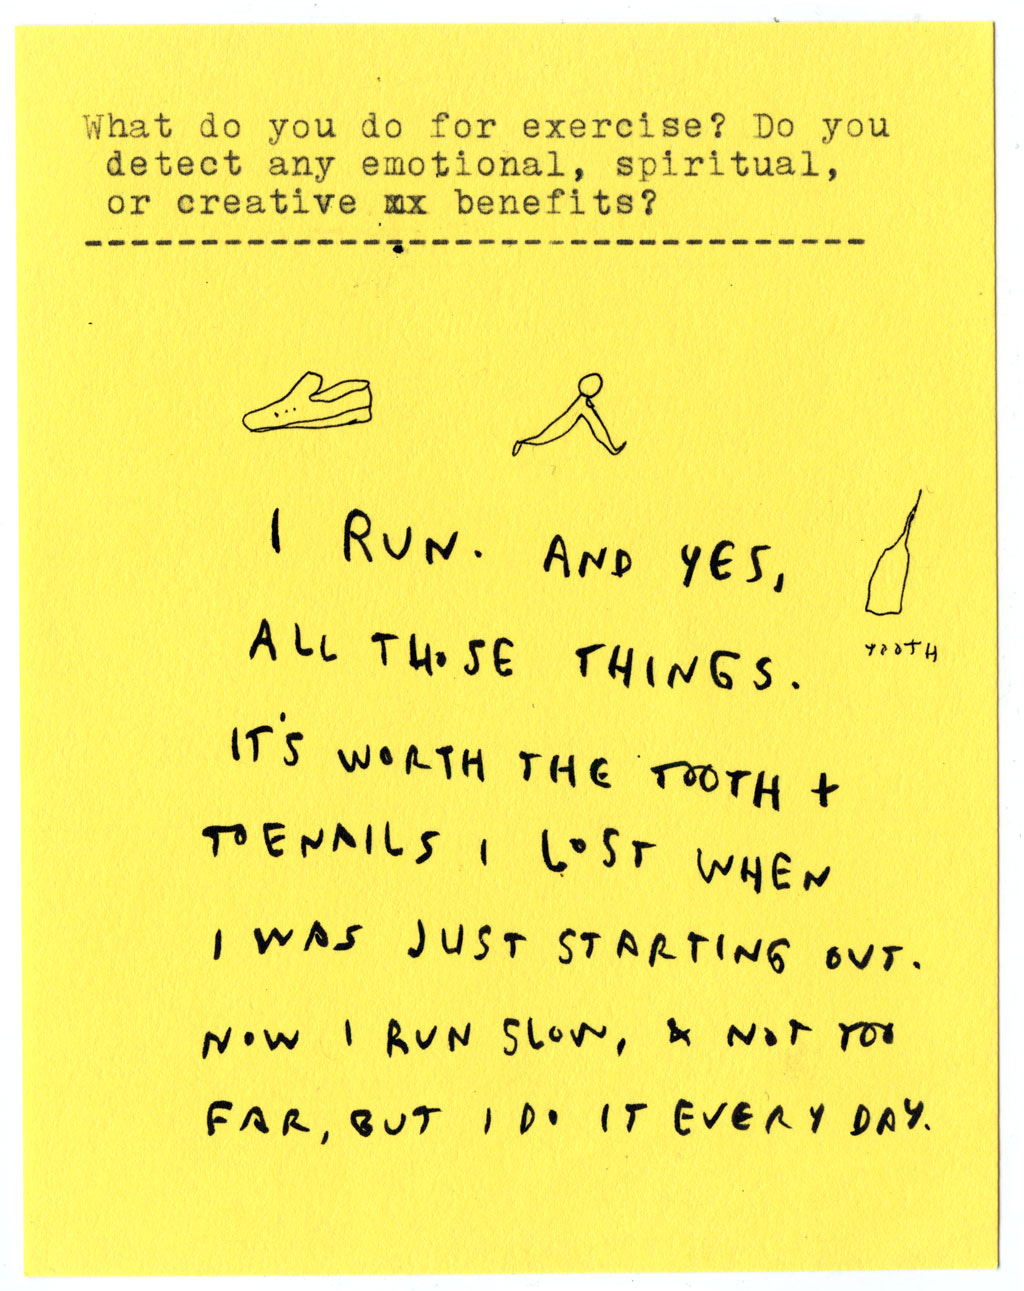 What do you do for exercise? Do you
detect any emotional, spiritual,
or creative xx benefits?
------------------------------------
I RUN. AND YES,
ALL THOSE THINGS.
TOOTH
IT'S WORTH THE TOOTH +
TOENAILS I LOST WHEN
I WAS JUST STARTING OUT.
NOW I RUN SLOW, & NOT TOO
FAR, BUT I DO IT EVERY DAY.